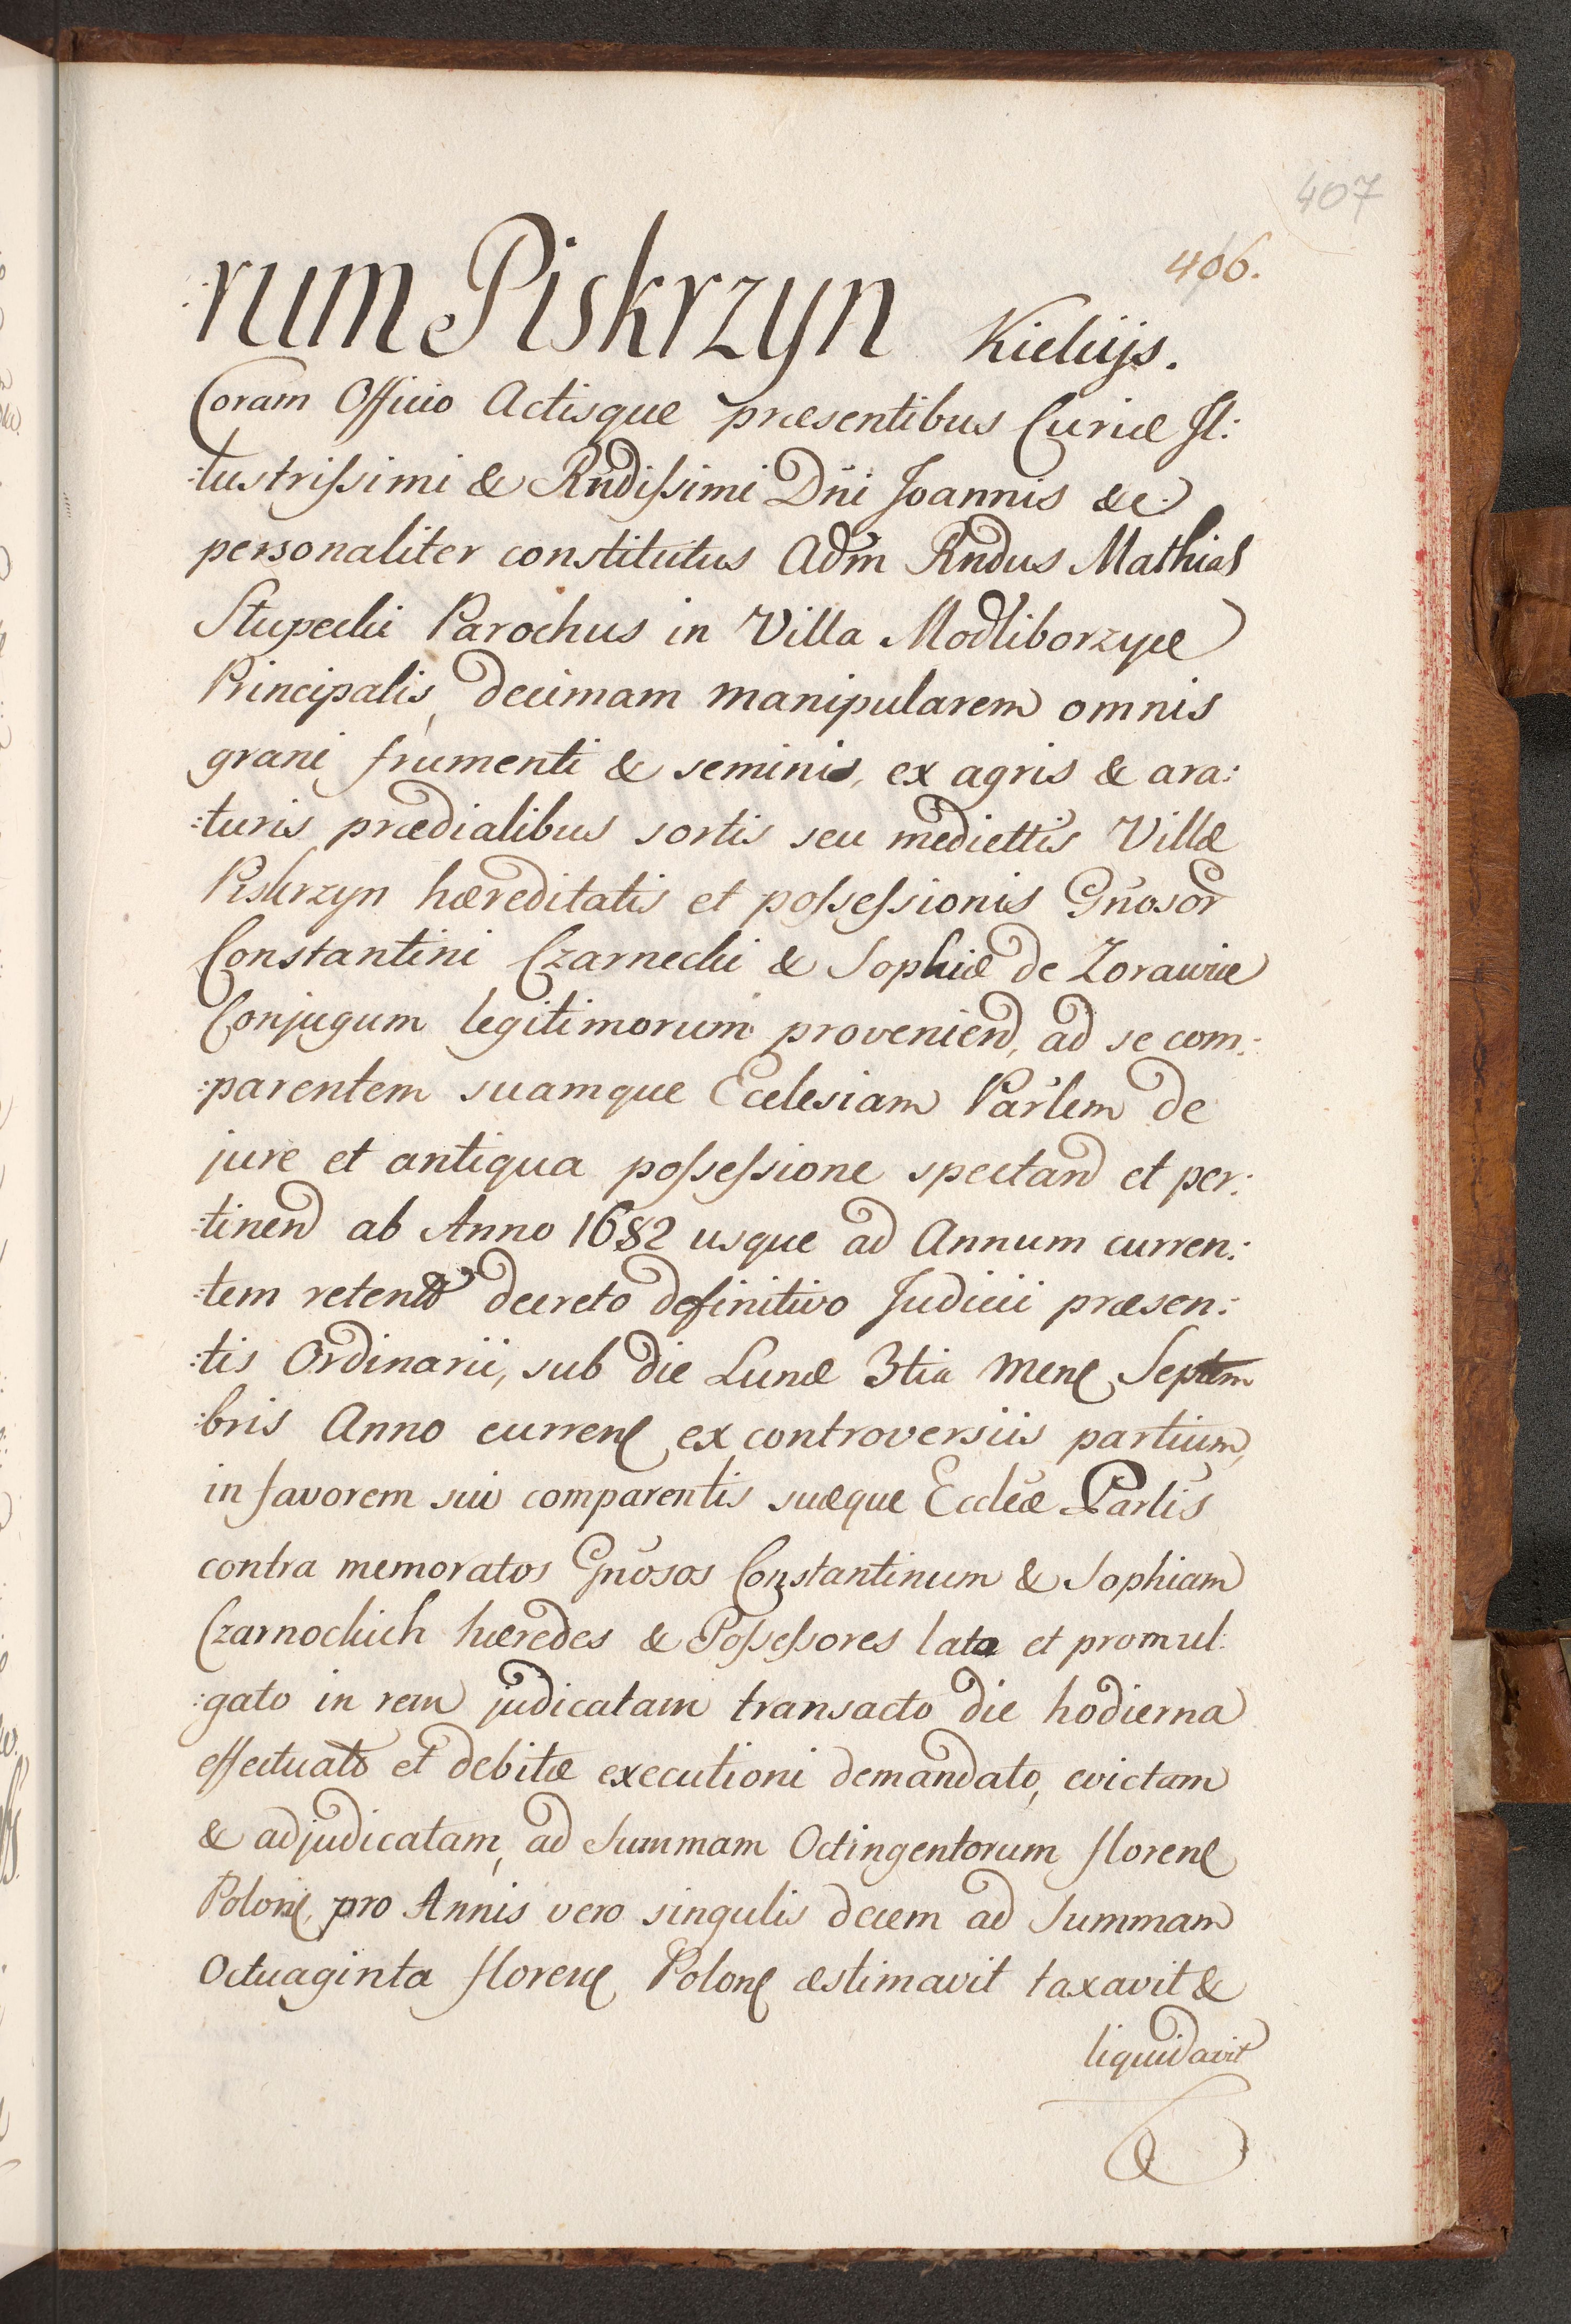 407
406.
:rum Piskrzyn Kielcijs.
Coram Officio Actisque præsentibus Curiæ Jl:
:lustrissimi & Rn̄dissimi Dn̄i Joannis &c.
personaliter constitutus Adm̄ Rndus Mathias
Słupecki Parochus in Villa Modliborzyce
Principalis, decimam manipularem omnis
grani frumenti & seminis, ex agris & ara:
:turis prædialibus sortis seu mediettis Villæ
Piskrzyn hæreditatis et possessionis Gn̄osor
Constantini Czarnecki & Sophiæ de Zorawice
Conjugum legitimorum proveniend, ad se com:
:parentem suamque Ecclesiam Par̄lem de
jure et antiqua possessione spectand et per:
:tinend ab Anno 1682 usque ad Annum curren:
:tem retento decreto definitivo Judicii præsen:
:tis Ordinarii, sub die Lunæ 3tia Mens Septem
:bris Anno currens ex controversiis partium,
in favorem sui comparentis suæque Eccl̄iæ Parl̄is
contra memoratos Gn̄osos Constantinum & Sophiam
Czarnockich hæredes & Possessores lato et promul:
:gato in rem judicatam transacto die hodierna
effectuato et debitæ executioni demandato, evictam
& adjudicatam, ad Summam Octingentorum florens
Polons, pro Annis vero singulis decem ad Summam
Octuaginta florens Polons æstimavit taxavit &
liquidavit